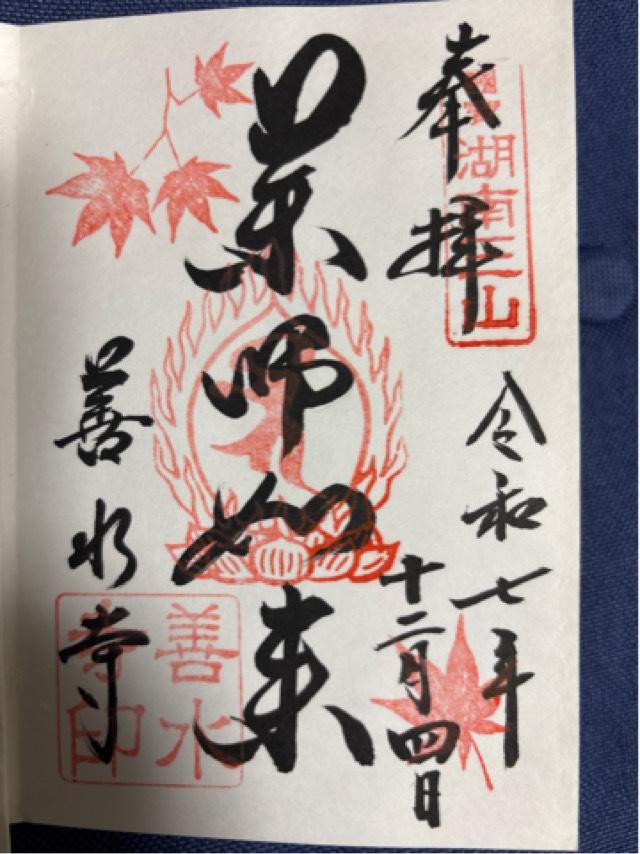 奉拝
國寶 湖南三山
令和七年
十二月四日
薬師如来
善水寺
善水寺印